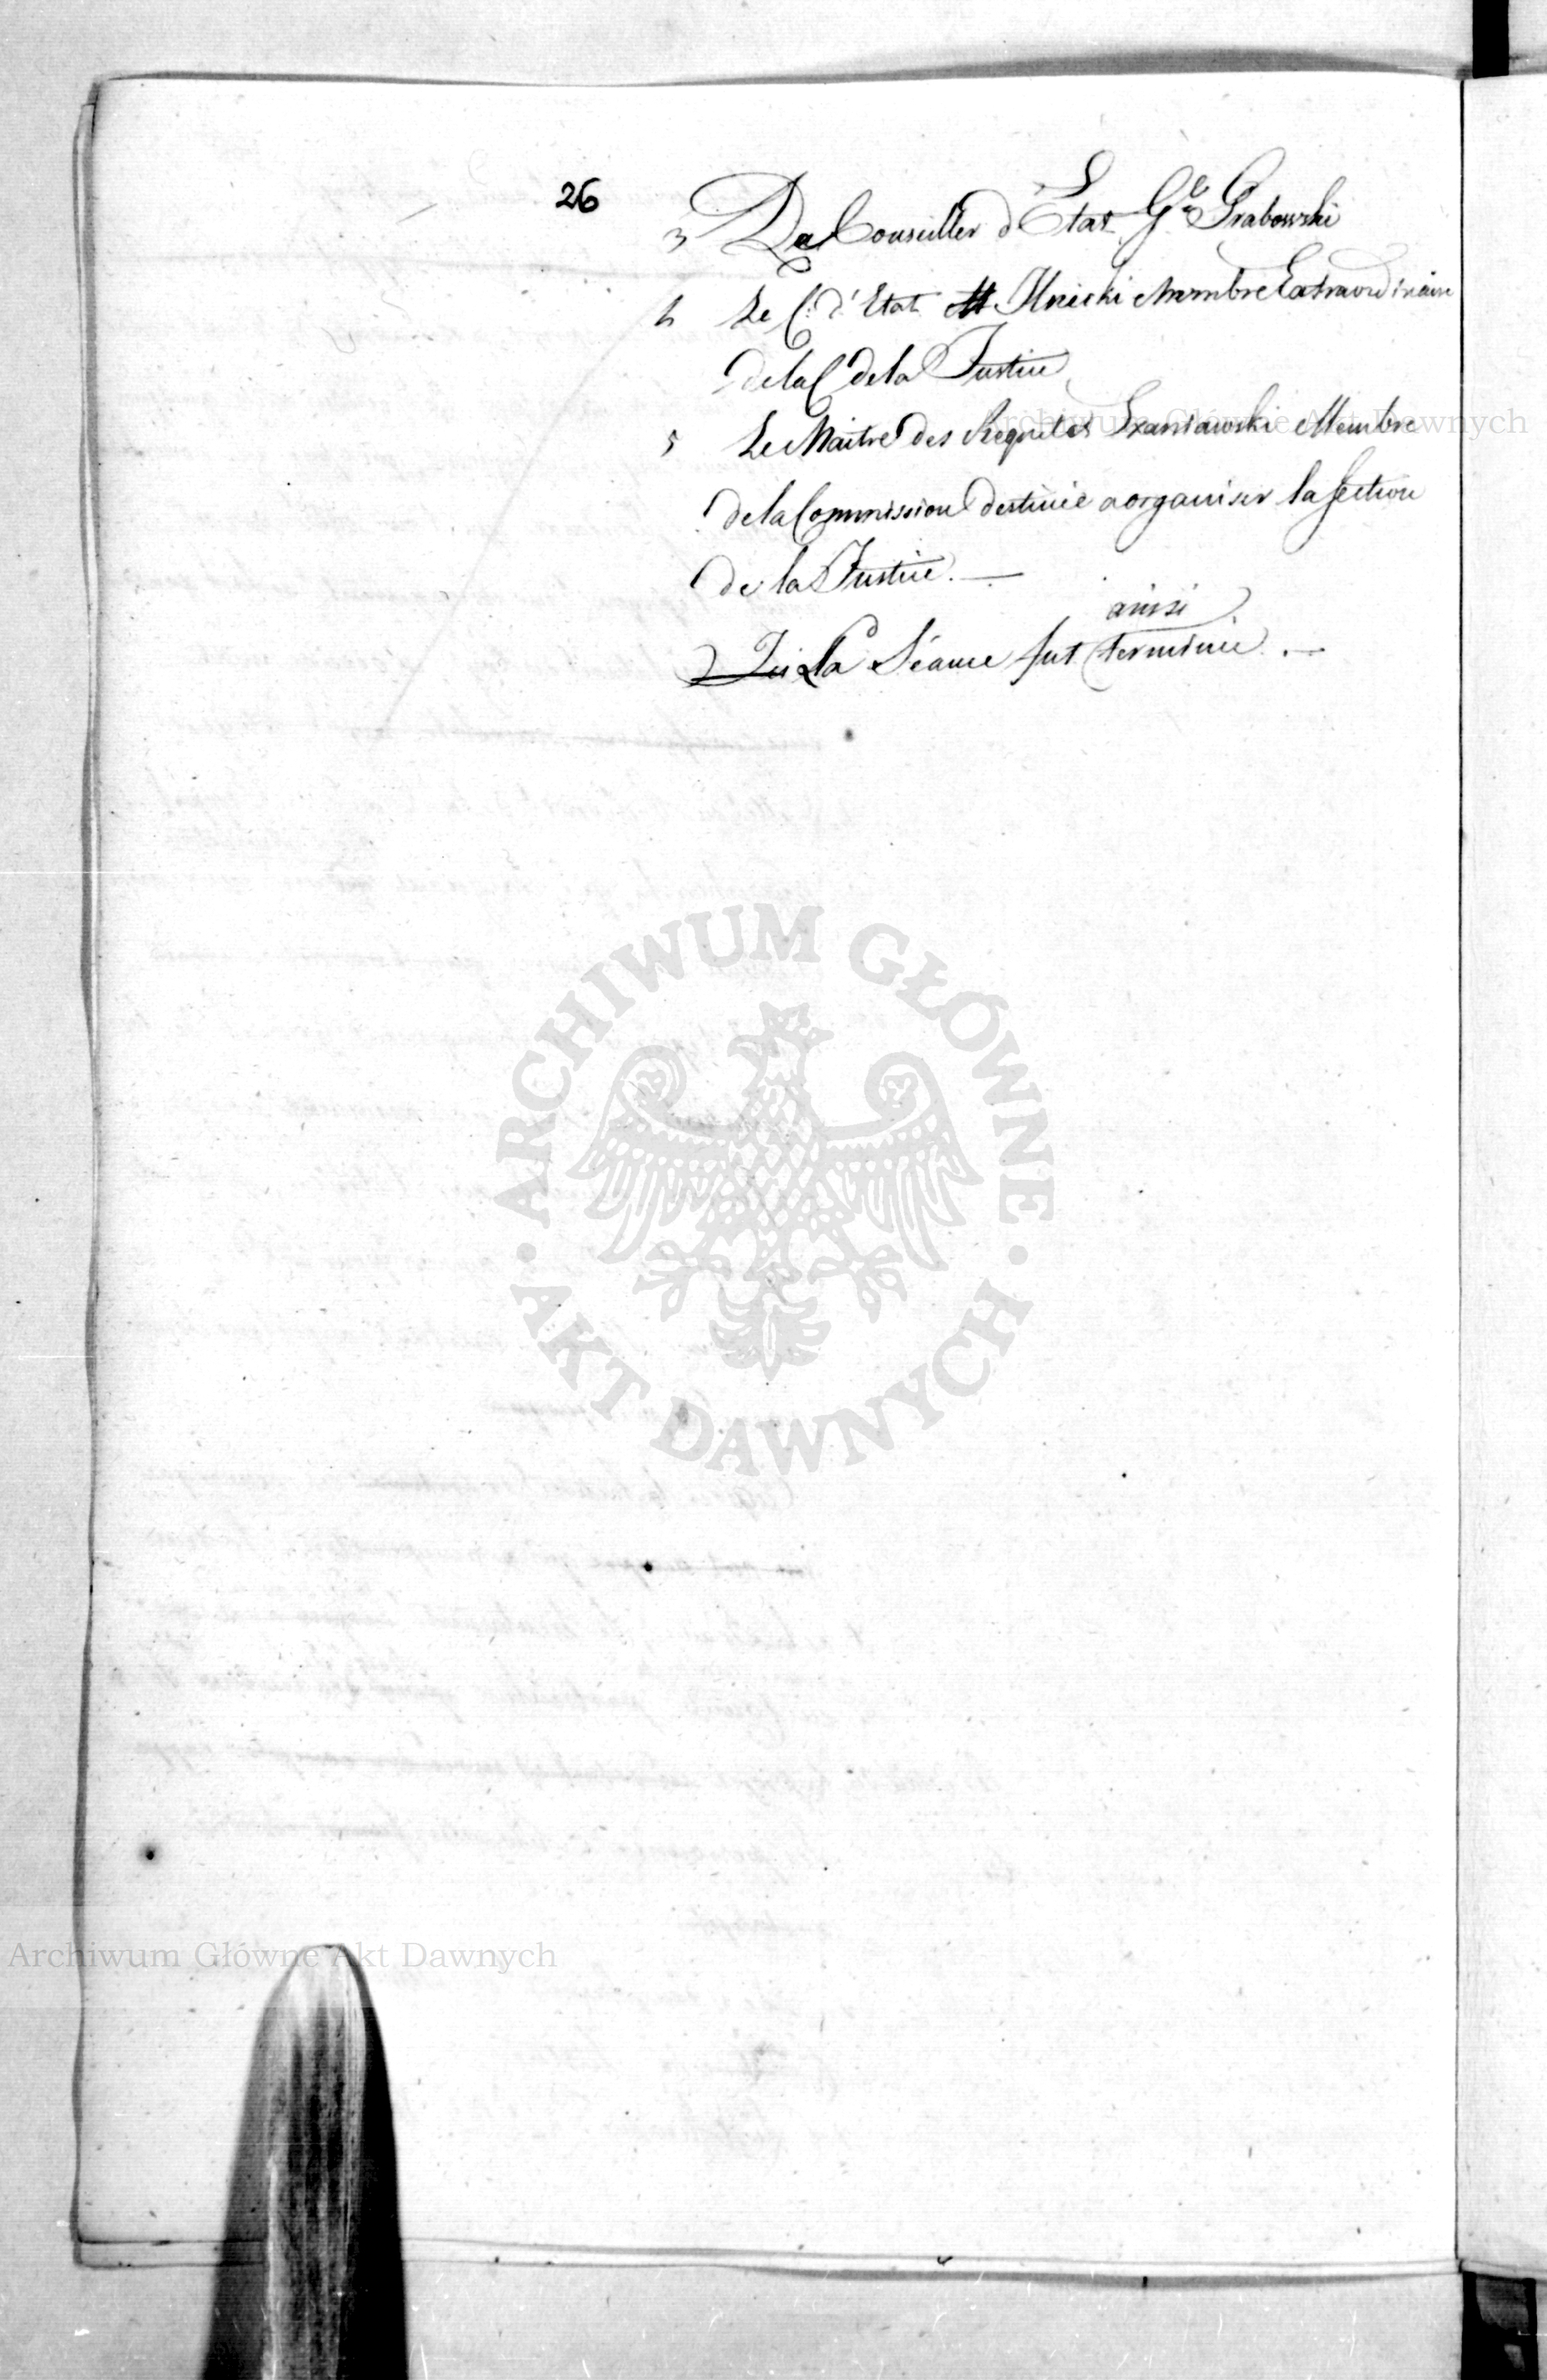 26
3 Le Conseiller d'Etat Gl Grabowski
4 Le C. d'Etat M Ilnicki Membre Extraordinaire
de la C de la Justice
5 Le Maitre des Requetes Szaniawski Membre
de la Commission destinée a organiser la section
de la Justice. —
ainsi
La Séance fut terminée. —
ARCHIWUM GŁÓWNE
AKT DAWNYCH
Archiwum Główne Akt Dawnych
Archiwum Główne Akt Dawnych